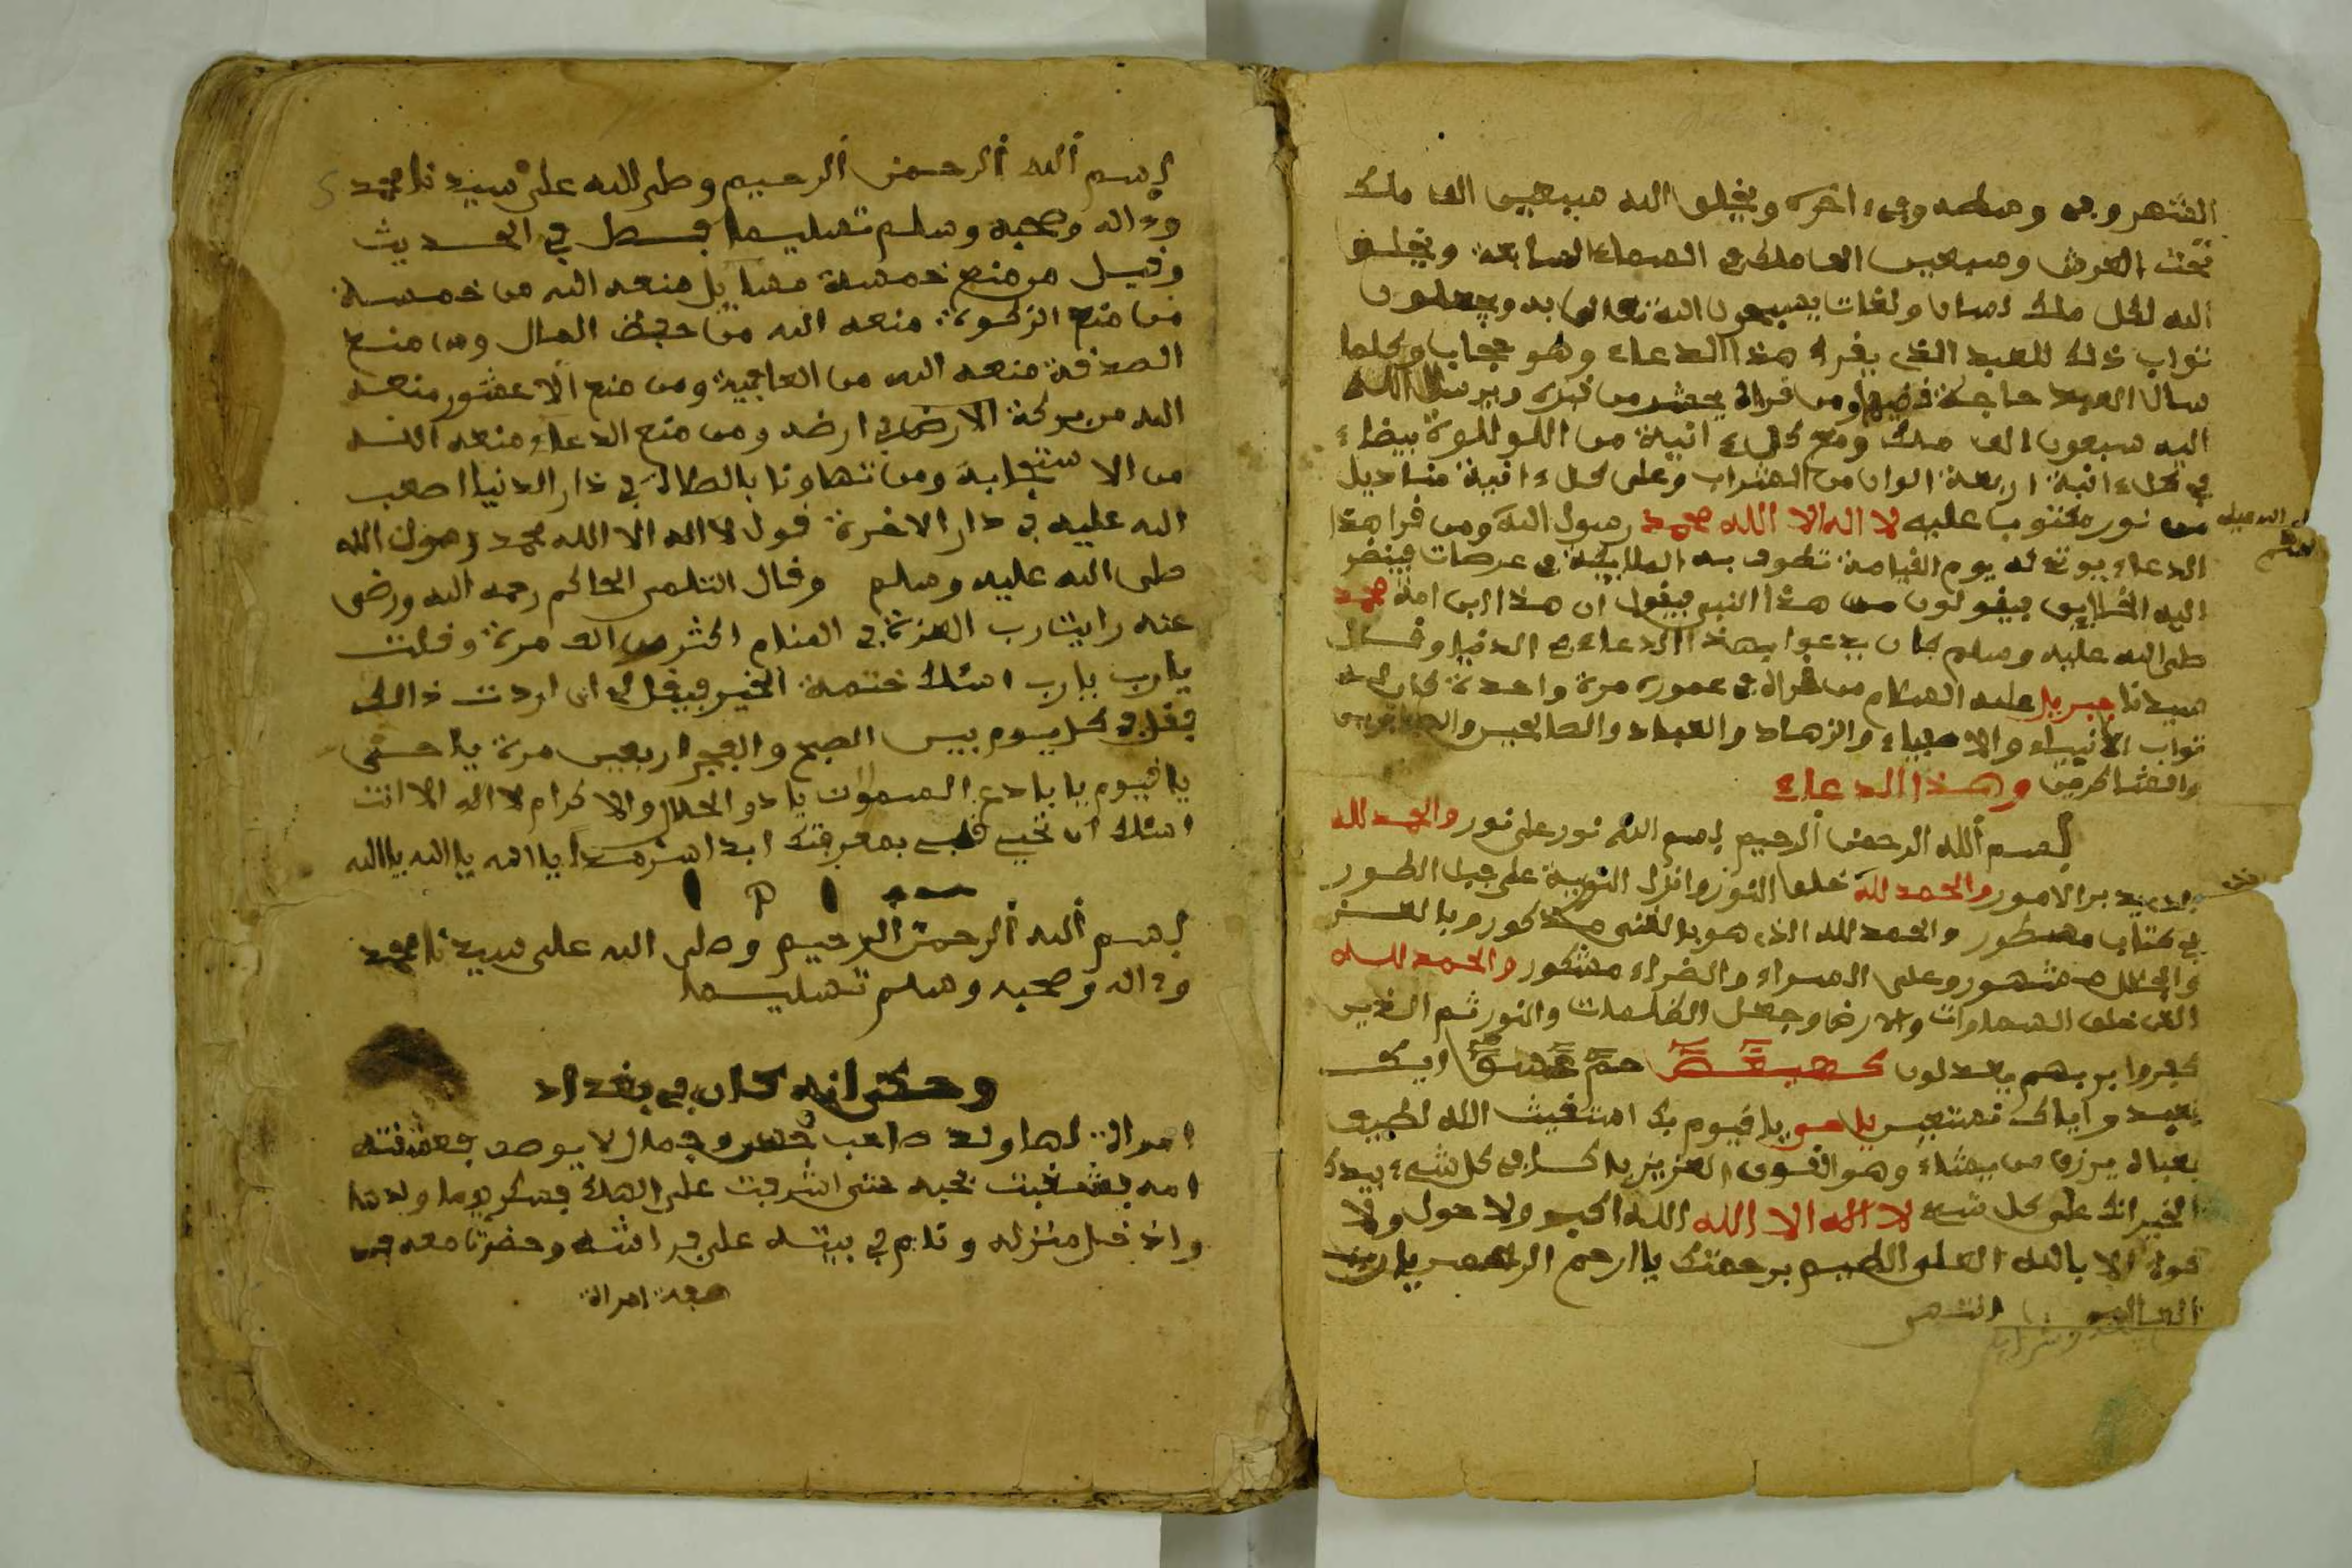 الشهر وفي وسطه وفي ءاخره ويخلق الله سبعين الف ملك
تحت العرش وسبعين الف ملك في السماء السابعة ويخلق
الله لكل ملك لسان ولغات يسبحون الله تعالى به ويجعلون
ثواب ذلك للعبد الذي يقرأ هذا الدعاء وهو حجاب وكلما
سأل العبد حاجة قضيها ومن قراه يحشر من قبره ويرسل الله
اليه سبعون الف ملك ومع كل ءانية من اللولوة بيضاء
في كل ءانية اربعة الوان من الشراب وعلى كل ءانية مناديل
من نور مكتوب عليه لا اله الا الله محمد رسول الله ومن قرا هذا
الدعاء يوتى له يوم القيامة تطوف به الملايكة في عرصات فينضر
اليه الخلايق فيقولون من هذا النبي فيقول ان هذا ابن امة محمد
صلى الله عليه وسلم كان يدعوا بهذا الدعاء في الدنيا وقال
سيدنا جبريل عليه السلام من قراه في عموره مرة واحدة كان له
ثواب الانبياء والاصفياء والزهاد والعباد والصالحين والصابرين
والشاكرين وهذا الدعاء
بسم الله الرحمن الرحيم بسم الله نور على نور والحمد لله
يدبر الامور والحمد لله خلق النور وانزل التورية على جبل الطور
في كتاب مسطور والحمد لله الذي هو بالغنى مذكور وبالعز
والجلال مشهور وعلى السراء والضراء مشكور والحمد لله
الذي خلق السماوات والارض وجعل الظلمات والنور ثم الذين
كفروا بربهم يعدلون كهيعص حم عسق اياك
نعبد واياك نستعين يا حي يا قيوم بك استغيث الله لطيف
بعباده يرزق من يشاء وهو القوي العزيز يا كل شيء بيدك
الخير انك على كل شيء لا اله الا الله الله اكبر ولا حول ولا
قوة الا بالله العلي العظيم برحمتك يا ارحم الراحمين يا رب
العالمين انتهى
بسم الله الرحمن الرحيم وصلى الله على سيدنا محمد
وءاله وصحبه وسلم تسليما فصل في الحديث
وقيل من منع خمسة مسايل منعه الله من خمسة
من منع الزكوة منعه الله من حفظ المال ومن منع
الصدقة منعه الله من العافية ومن منع الاعشور منعه
الله من بركة الارض في ارضه ومن منع الدعاء منعه الله
من الاستجابة ومن تهاونا بالصلاة في دار الدنيا اصعب
الله عليه في دار الاخرة قول لا اله الا الله محمد رسول الله
صلى الله عليه وسلم وقال الحاكم رحمه الله ورضي
عنه رايت رب العزة في المنام اكثر من الف مرة وقلت
يا رب يا رب اسئلك ختمة الخير فيقل لي ان اردت ذالك
فقل في كل يوم بين الصبح والفجر اربعين مرة يا حي
يا قيوم يا بادع السموات يا ذو الجلال والاكرام لا اله الا انت
اسئلك ان تحيي قلبي بمعرفتك ابدا يا الله يا الله يا الله
بسم الله الرحمن الرحيم وصلى الله على سيدنا محمد
وءاله وصحبه وسلم تسليما
وحكي انه كان في بغداد
امراة لها ولد صاحب حسن وجمال لا يوصف فعشقته
امه فشغفت بحبه حتى اشرفت على الهلاك فسكر يوما ولدها
واذ دخل منزله ونام في بيته على فراشه وحضرت معه
امراة